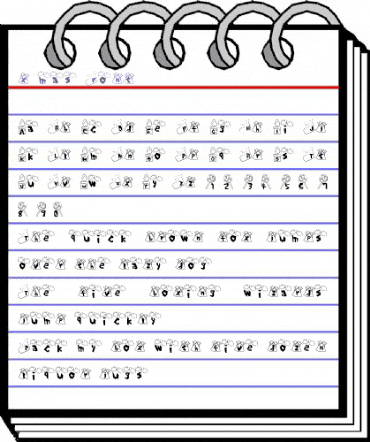 X mas font
Aa Bb Cc Dd Ee Ff Gg Hh Ii Jj
Kk Ll Mm Nn Oo Pp Qq Rr Ss Tt
Uu Vv Ww Xx Yy Zz 1 2 3 4 5 6 7
8 9 0
The quick brown fox jumps
over the lazy dog
The five boxing wizards
jump quickly
Pack my box with five dozen
liquor jugs